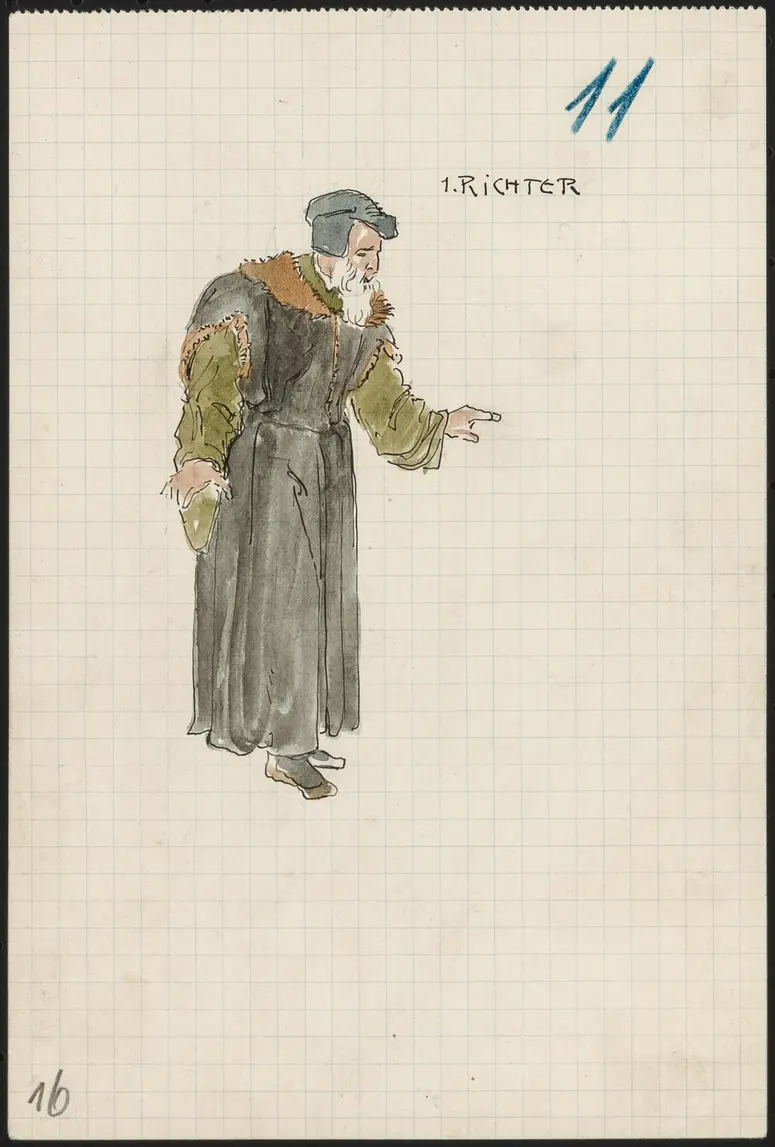 11
1.RiCHTER
16